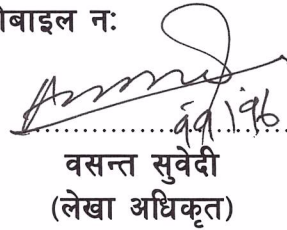 ोबाइल नः
११।१६
वसन्त सुवेदी
(लेखा अधिकृत)